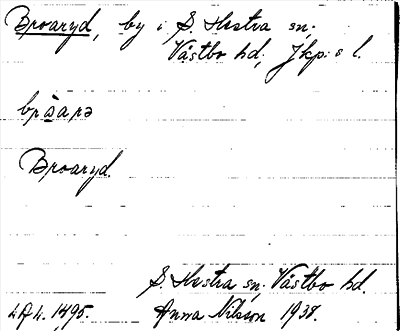 Broaryd, by i S. Hestra sn.
Västbo hd; Jkp:s l.
bròarə
Broaryd.
S. Hestra sn. Västbo hd.
Anna Nilsson 1938.